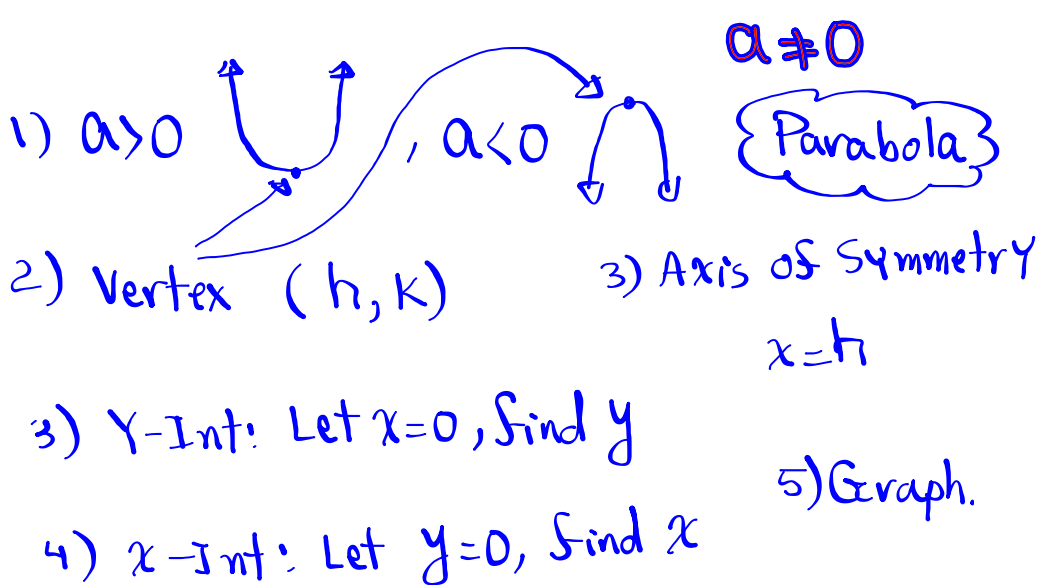 a≠0
1) a>0 , a<0 Parabola
2) Vertex (h,k) 3) Axis of Symmetry
x=h
3) Y-Int: Let x=0, find y
5) Graph.
4) x-Int: Let y=0, find x